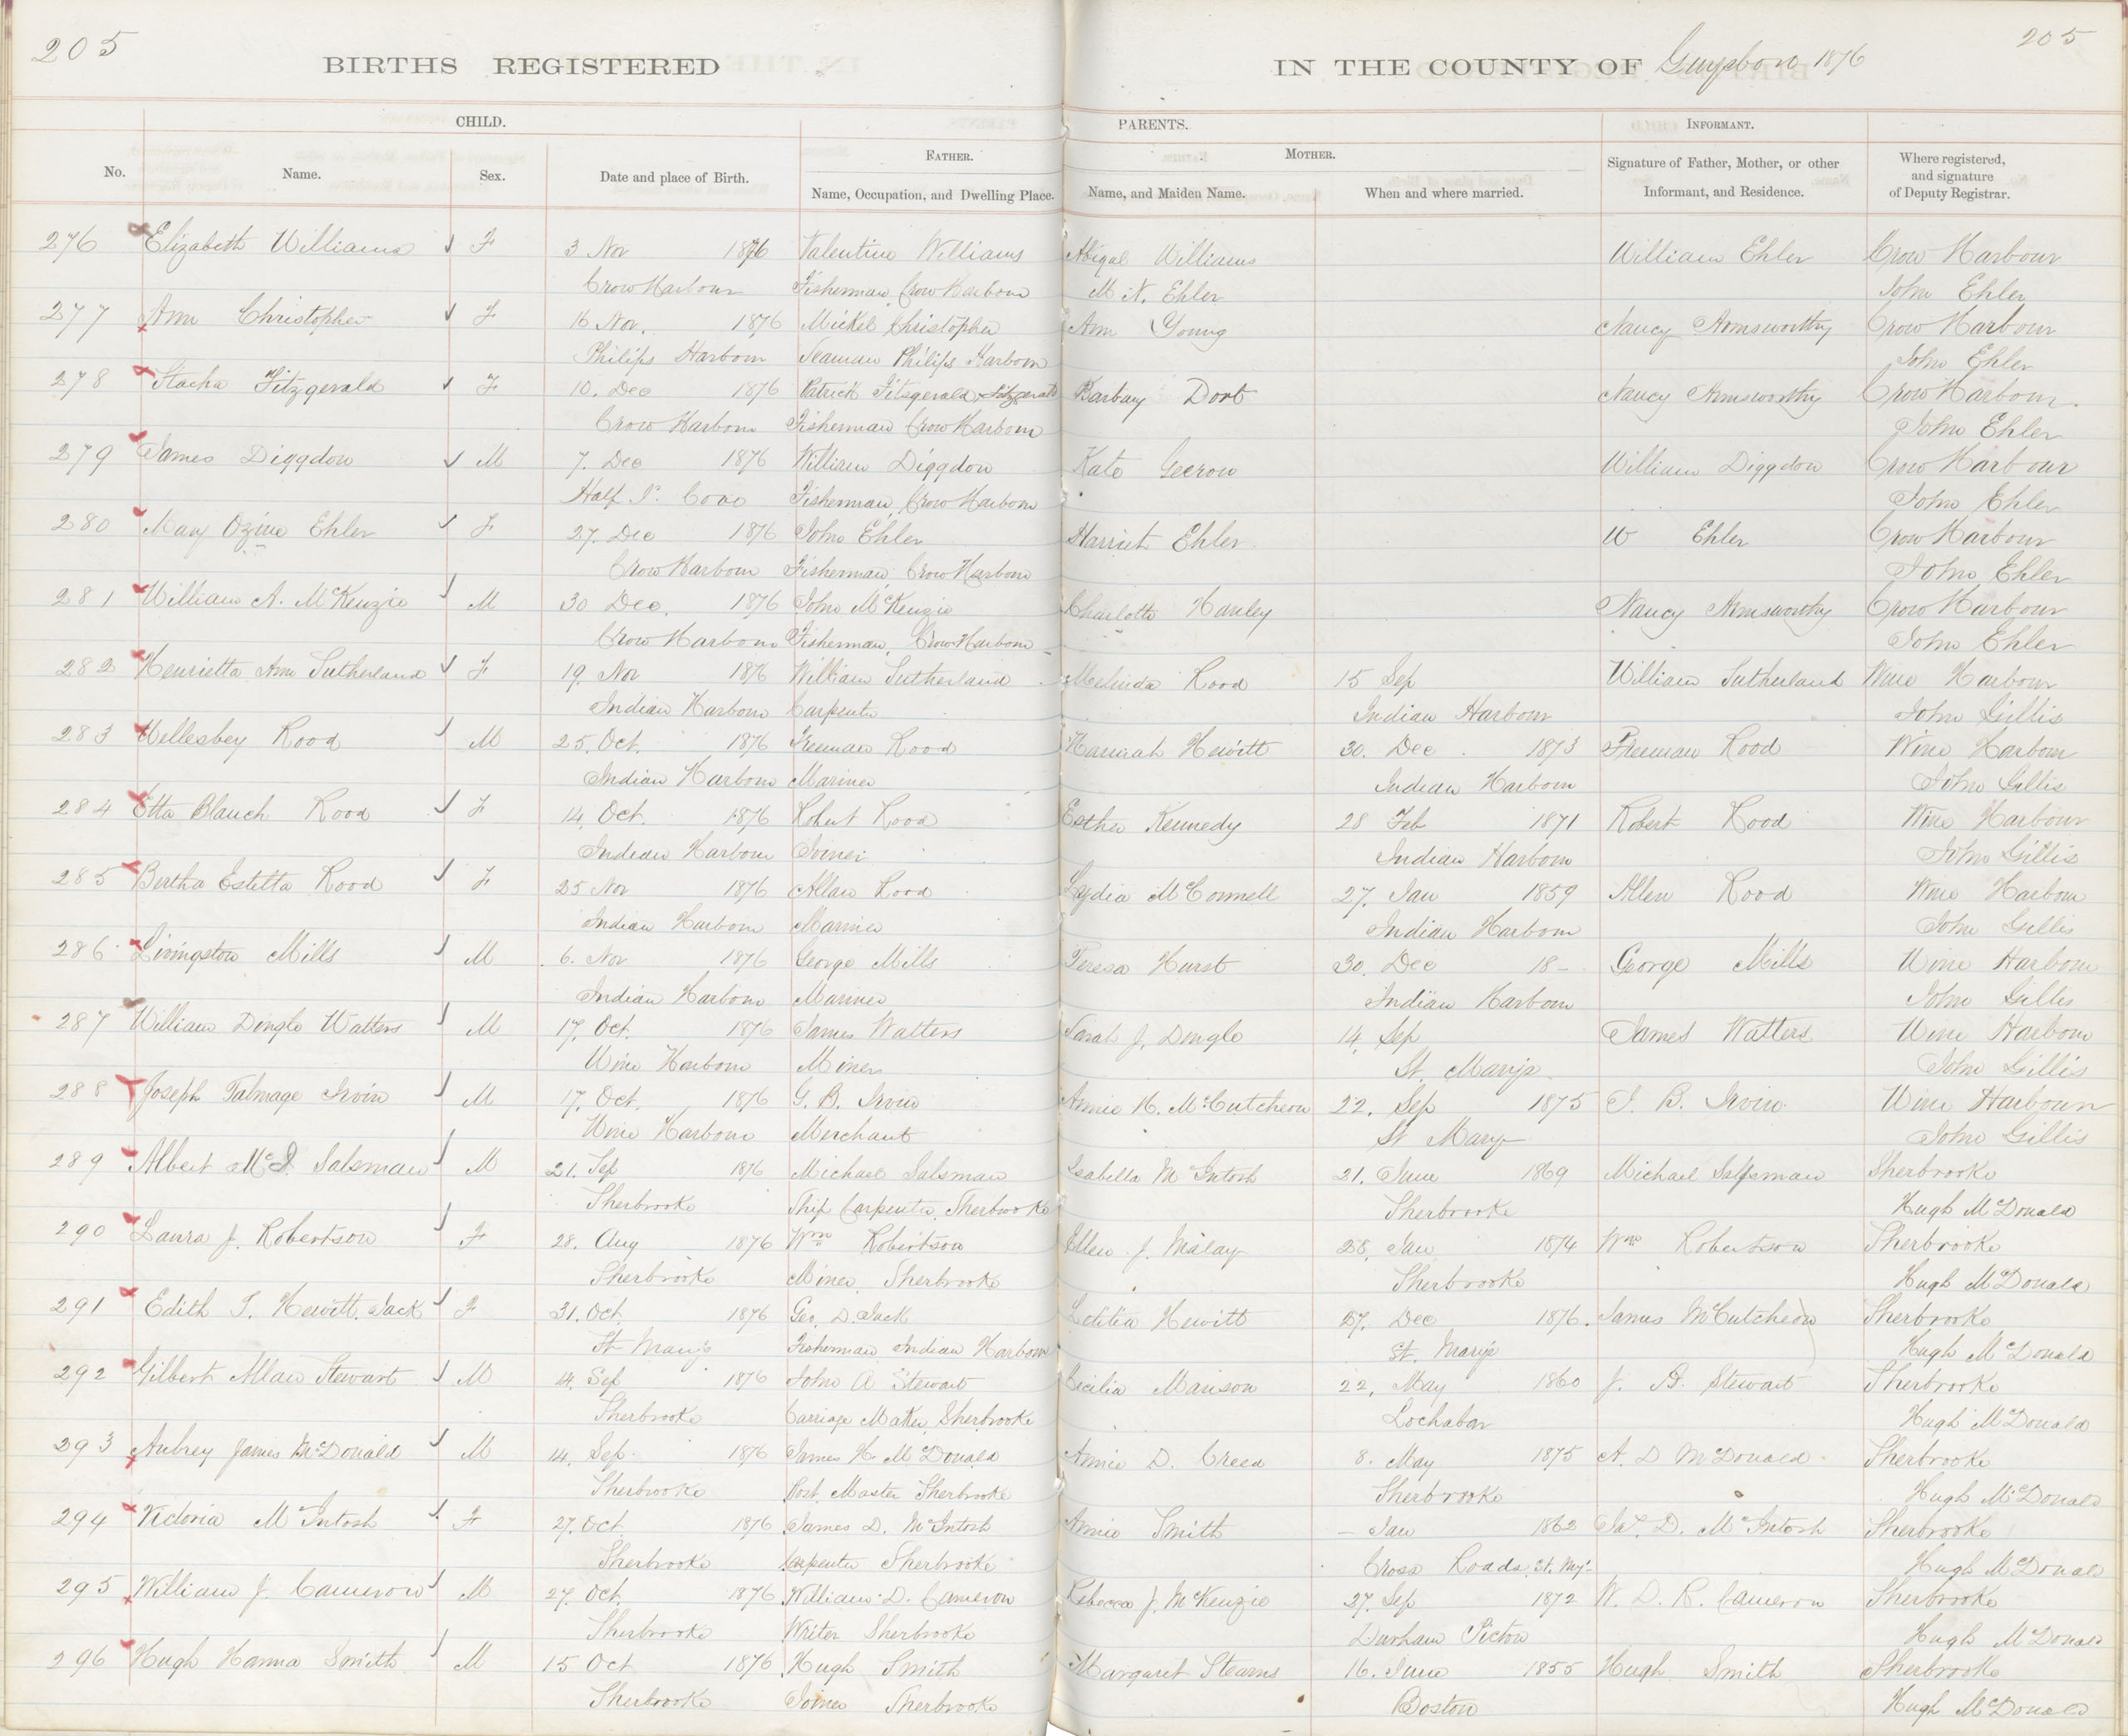 205
205
BIRTHS REGISTERED
IN THE COUNTY OF Guysboro 1876
CHILD.
PARENTS.
INFORMANT.
No.
Name.
Sex.
Date and place of Birth.
FATHER.
Name, Occupation, and Dwelling Place.
MOTHER.
Name, and Maiden Name.
When and where married.
Signature of Father, Mother, or other
Informant, and Residence.
Where registered,
and signature
of Deputy Registrar.
276 Elizabeth Williams F 3 Nov 1876 Valentine Williams Abigal Williams William Ehler Crow Harbour
Crow Harbour Fisherman, Crow Harbour M. N. Ehler John Ehler
277 Ann Christopher F 16 Nov. 1876 Mickel Christopher Ann Young Nancy Armsworthy Crow Harbour
Philips Harbour Seaman Philips Harbour John Ehler
278 Stacha Fitzgerald F 10. Dec 1876 Patrick Fitsgerald Fitzgerald Barbay Dort Nancy Armsworthy Crow Harbour.
Crow Harbour Fisherman Crow Harbour John Ehler
279 James Diggdon M 7. Dec 1876 William Diggdon Kate William Diggdon Crow Harbour
Half I. Cove Fisherman, Crow Harbour John Ehler
280 Mary Ozine Ehler F 27. Dec 1876 John Ehler Harriet Ehler W Ehler Crow Harbour
Crow Harbour Fisherman, Crow Harbour John Ehler
281 William A. McKenzie M 30 Dec. 1876 John McKenzie Charlotte Hanley Nancy Armsworthy Crow Harbour
Crow Harbour Fisherman, Crow Harbour John Ehler
282 Henrietta Ann Sutherland F 19. Nov 1876 William Sutherland Melinda Rood 15 Sep William Sutherland Wine Harbour
Indian Harbour Carpenter Indian Harbour John Gillis
283 Wellesbey Rood M 25. Oct. 1876 Freeman Rood Hannah Hewitt 30. Dec. 1873 Freeman Rood Wine Harbour
Indian Harbour Mariner Indian Harbour John Gillis
284 Etta Blanch Rood F 14. Oct. 1876 Robert Rood Esther Kennedy 28 Feb 1871 Robert Rood Wine Harbour
Indian Harbour Joiner Indian Harbour John Gillis
285 Bertha Estella Rood F 25 Nov 1876 Allan Rood Lydia McConnell 27. Jan 1859 Allen Rood Wine Harbour
Indian Harbour Mariner Indian Harbour John Gillis
286 Livingston Mills M 6. Nov 1876 George Mills Teresa Hurst 30. Dec 18- George Mills Wine Harbour
Indian Harbour Mariner Indian Harbour John Gillis
287 William Dingle Watters M 17. Oct. 1876 James Watters Sarah J. Dingle 14. Sep James Watters Wine Harbour
Wine Harbour Miner St. Marys John Gillis
288 Joseph Talmage Irvin M 17. Oct. 1876 G. B. Irvin Annie H. McCutcheon 22. Sep 1875 J. B. Irvin Wine Harbour
Wine Harbour Merchant St Marys John Gillis
289 Albert McI. Salsman M 21. Sep 1876 Michael Salsman Isabella McIntosh 21. June 1869 Michael Salsman Sherbrooke
Sherbrooke Ship Carpenter, Sherbrooke Sherbrooke Hugh McDonald
290 Laura J. Robertson F 28. Aug 1876 Wm Robertson Ellen J. Malay 28. Jan 1874 Wm Robertson Sherbrooke
Sherbrooke Miner, Sherbrooke Sherbrooke Hugh McDonald
291 Edith S. Hewitt. Jack F 31. Oct. 1876 Geo. D. Jack Letitia Hewitt 27. Dec 1876. James McCutcheon Sherbrooke
St Marys Fisherman Indian Harbour St. Marys Hugh McDonald
292 Gilbert Allan Stewart M 14. Sep 1876 John A Stewart Cicilia Manson 22. May 1860 J. B. Stewart Sherbrooke
Sherbrooke Carriage Maker, Sherbrooke Lochaber Hugh McDonald
293 Aubrey James McDonald M 14. Sep. 1876 James H. McDonald Annie D. Creed 8. May 1875 A. D McDonald Sherbrooke
Sherbrooke Post Master Sherbrooke Sherbrooke Hugh McDonald
294 Victoria McIntosh F 27. Oct. 1876 James D. McIntosh Annie Smith - Jan 1862 Jas. D. McIntosh Sherbrooke
Sherbrooke Carpenter Sherbrooke Cross Roads, St. Mys. Hugh McDonald
295 William J. Cameron M 27. Oct. 1876 William D. Cameron Rebecca J. McKenzie 27. Sep 1872 W. D. R. Cameron Sherbrooke
Sherbrooke Writer Sherbrooke Durham Pictou Hugh McDonald
296 Hugh Hanna Smith M 15 Oct 1876 Hugh Smith Margaret Stearns 16. June 1855 Hugh Smith Sherbrooke
Sherbrooke Joiner Sherbrooke Boston Hugh McDonald